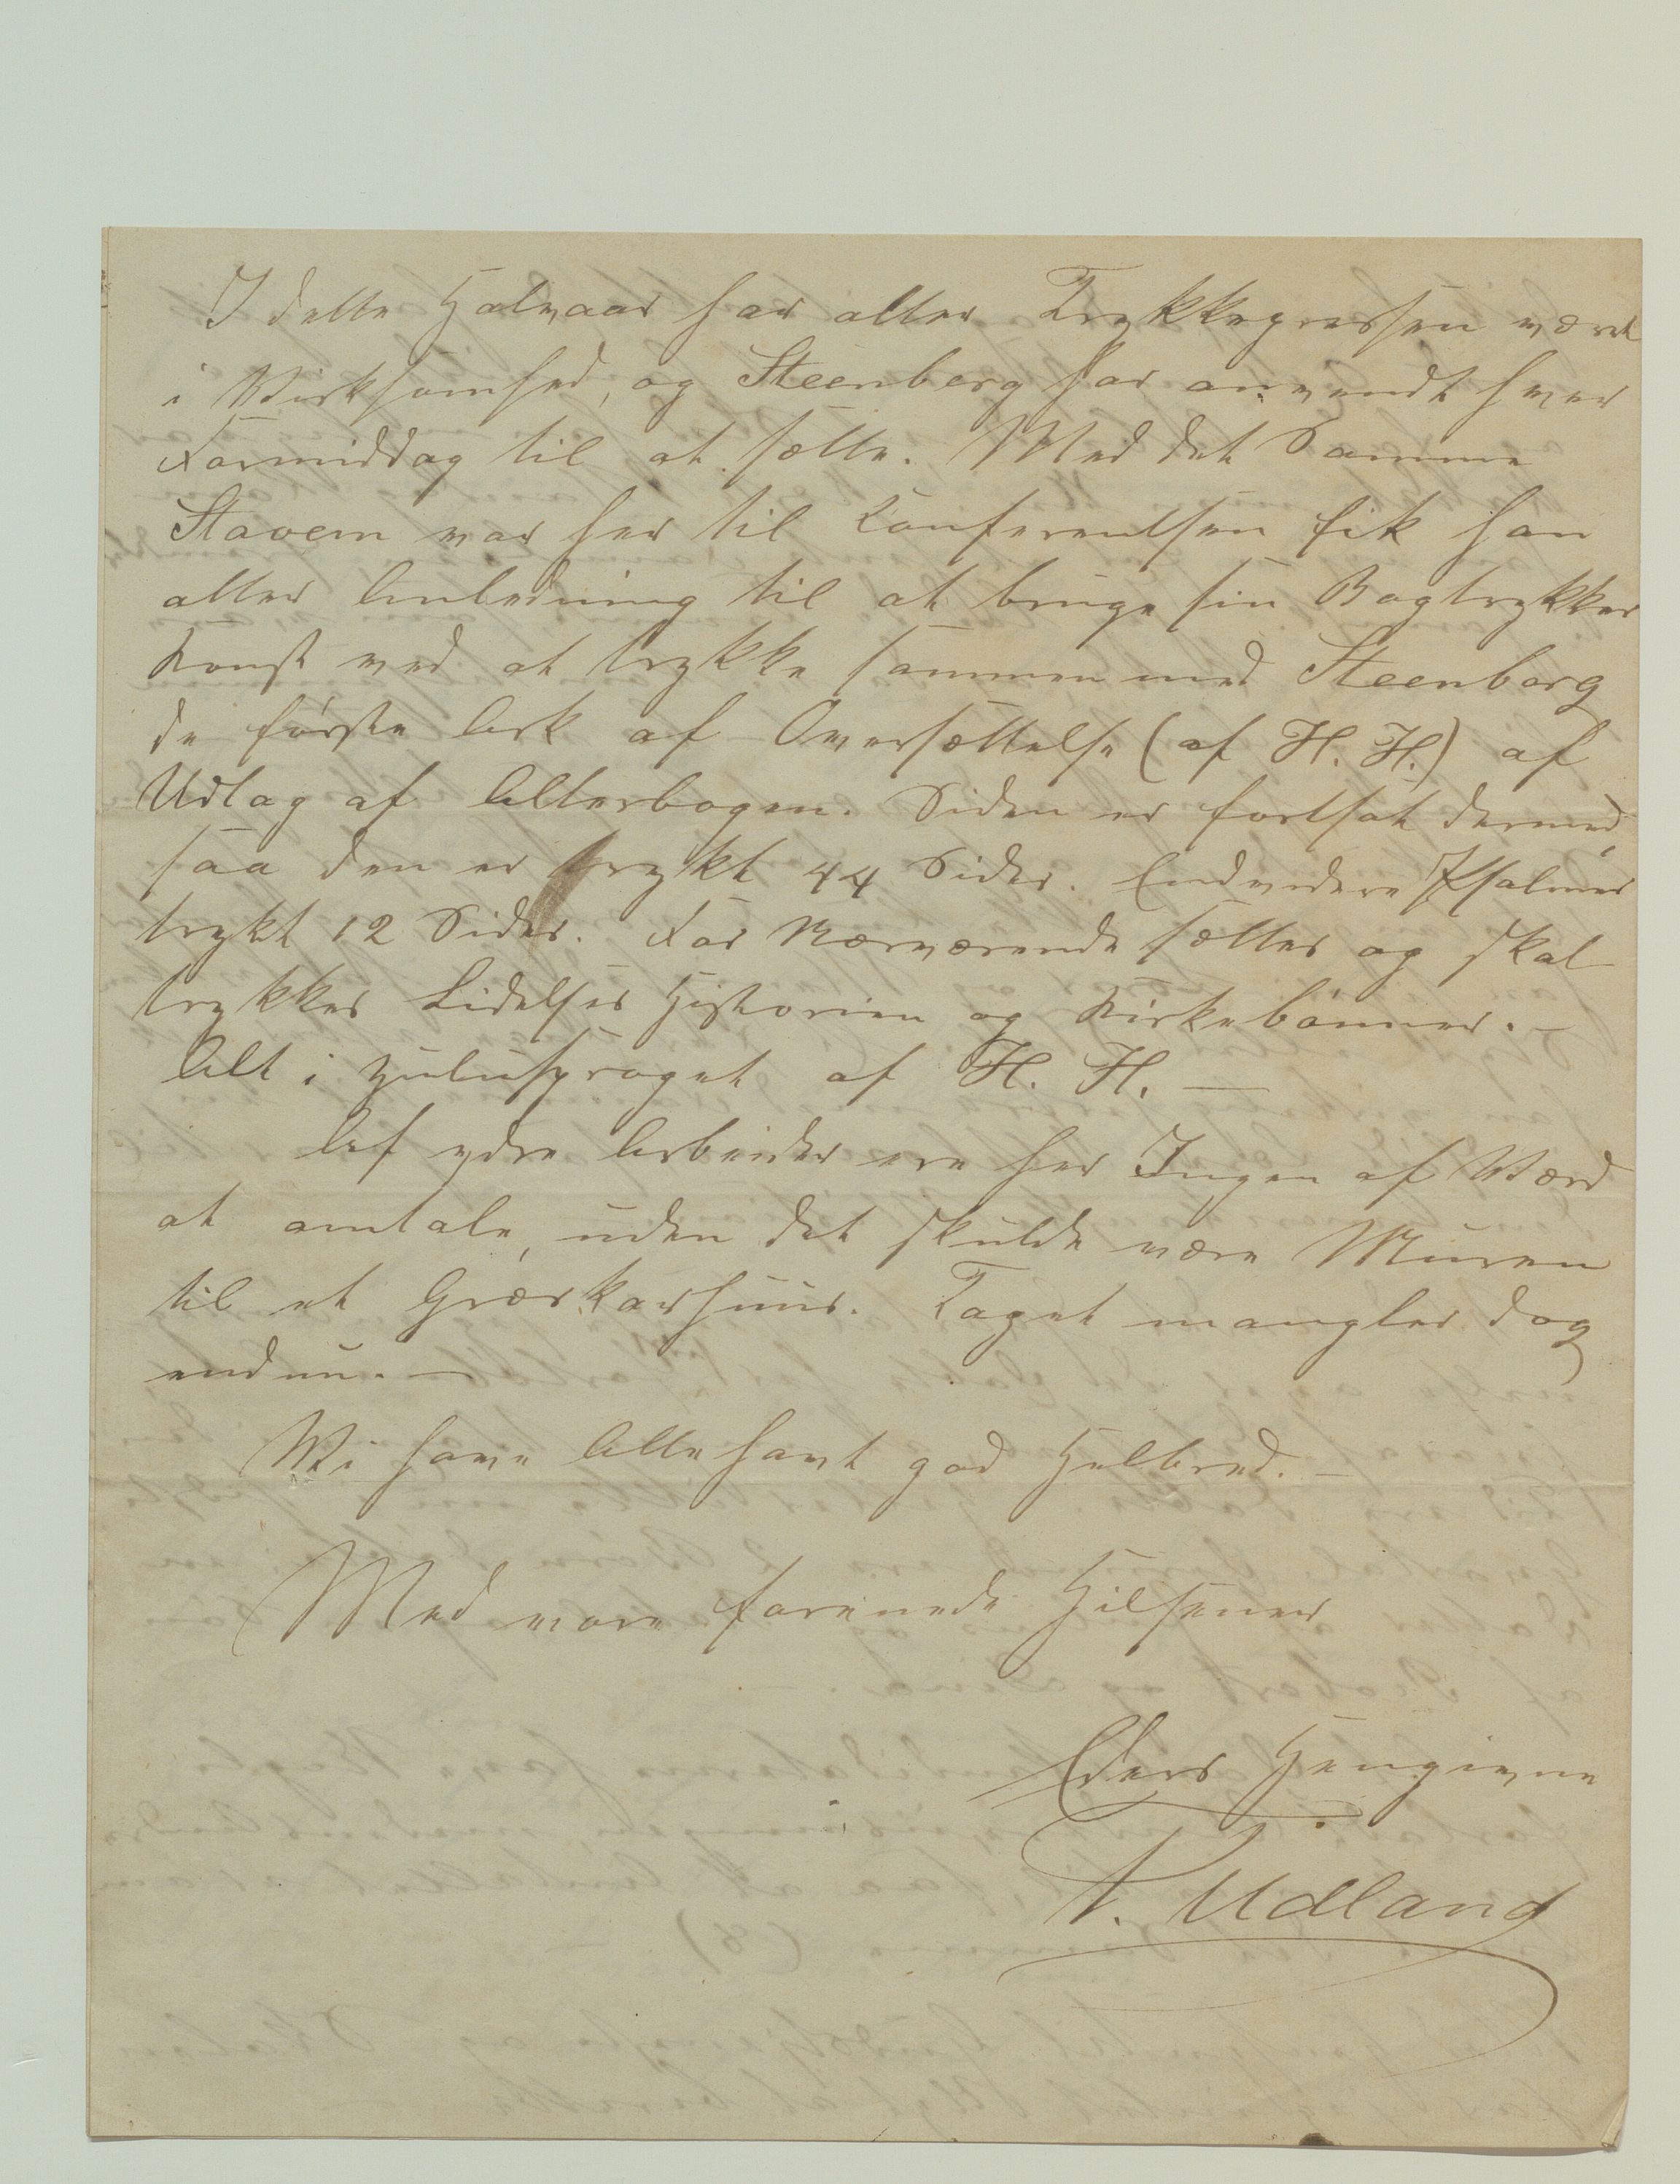 I dette Halvaar har atter Trykkepressen været
i Virksomhed, og Steenberg har anvendt hver
Formiddag til at sætte. Med det Samme
Stavem var her til Conferentsen fik han
atter Anledning til at bruge sin Bogtrykker
Konst ved at trykke sammen med Steenberg
de første Ark af Oversættelse (af H. H.) af
Udtog af Alterbogen. Siden er fortsat dermed,
saa den er trykt 44 Sider. Endvidere Psalmer
trykt 12 Sider. For Nærværende sættes og skal
trykkes Lidelses Historien og Kirkebønner. —
Alt i Zulusproget af H. H. —
Af ydre Arbeider ere her Ingen af Værd
at omtale, uden det skulde være Muren
til et Græskarhuus. Taget mangler dog
endnu. —
Vi have Alle havt god Helbred. —
Med vore forenede Hilsener
Eders Hengivne
T. Udland